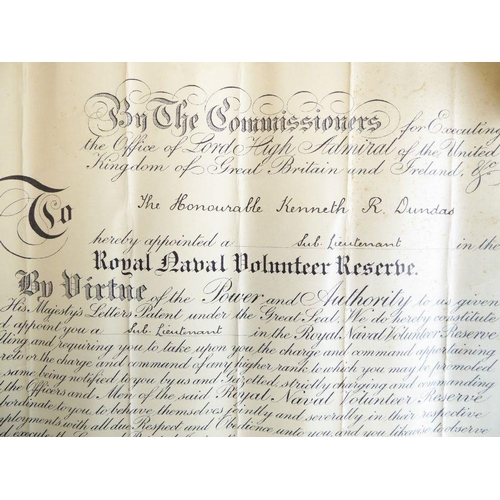 By The Commissioners for Executing
the Office of Lord High Admiral of the United
Kingdom of Great Britain and Ireland, &c
To The Honourable Kenneth R. Dundas
hereby appointed a Sub. Lieutenant in the
Royal Naval Volunteer Reserve.
By Virtue of the Power and Authority to us given
His Majesty's Letters Patent under the Great Seal, We do hereby constitute
d appoint you a Sub. Lieutenant in the Royal Naval Volunteer Reserve
lling and requiring you to take upon you the charge and command appertaining
reto or the charge and command of any higher rank to which you may be promoted
same being notified to you by us and Gazetted, strictly charging and commanding
the Officers and Men of the said Royal Naval Volunteer Reserve
ordinate to you, to behave themselves jointly and severally in their respective
ployments with all due Respect and Obedience unto you, and you likewise to observe
d execute the